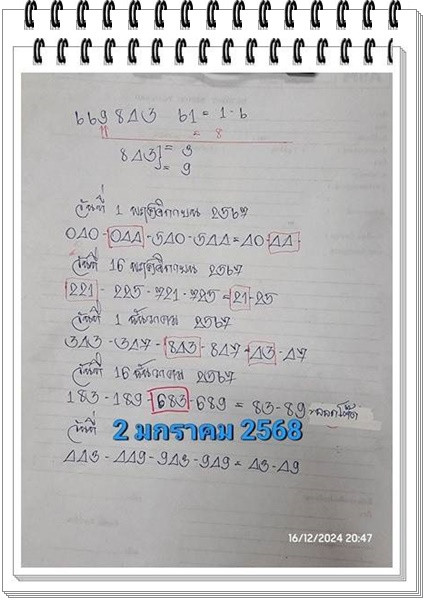 669843 61 = 1-6
= 8
843} = 3
= 9
วันที่ 1 พฤศจิกายน 2567
040-044-540-544=40-44
วันที่ 16 พฤศจิกายน 2567
221-225-721-725=21-25
วันที่ 1 ธันวาคม 2567
343-347-843-847=43-47
วันที่ 16 ธันวาคม 2567
183-189-683-689=83-89
วันที่
2 มกราคม 2568
443-449-943-949=43-49
16/12/2024 20:47